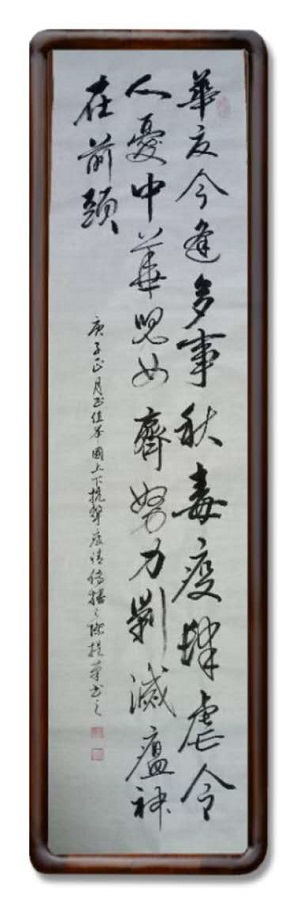 華夏今逢多事秋毒疫肆虐令
人憂中華兒女齊努力剿滅瘟神
在前頭
庚子正月正值举國上下抗擊疫情傳播之華書之